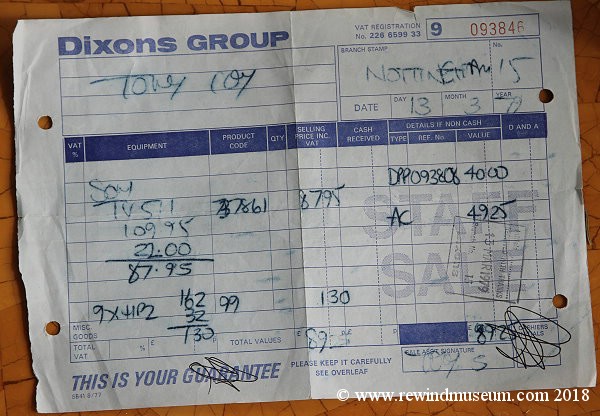 Dixons GROUP
VAT REGISTRATION
No. 226 6599 33
9
093846
BRANCH STAMP
No.
15
DATE
DAY 13
MONTH 3
YEAR
VAT %
EQUIPMENT
PRODUCT CODE
QTY
SELLING PRICE INC. VAT
CASH RECEIVED
DETAILS IF NON CASH
TYPE
REF. No.
VALUE
D AND A
DPP093808 4000
Sony
TV511
37861
8795
AC
4925
109.95
22.00
87.95
STAFF SALE
9X4HP2
162
99
130
32
130
MISC. GOODS
TOTAL VAT
%
£
P
TOTAL VALUES
£
P
£
CASHIERS INITIALS
SALE ASST SIGNATURE
THIS IS YOUR GUARANTEE
PLEASE KEEP IT CAREFULLY
SEE OVERLEAF
5641 8/77
© www.rewindmuseum.com 2018